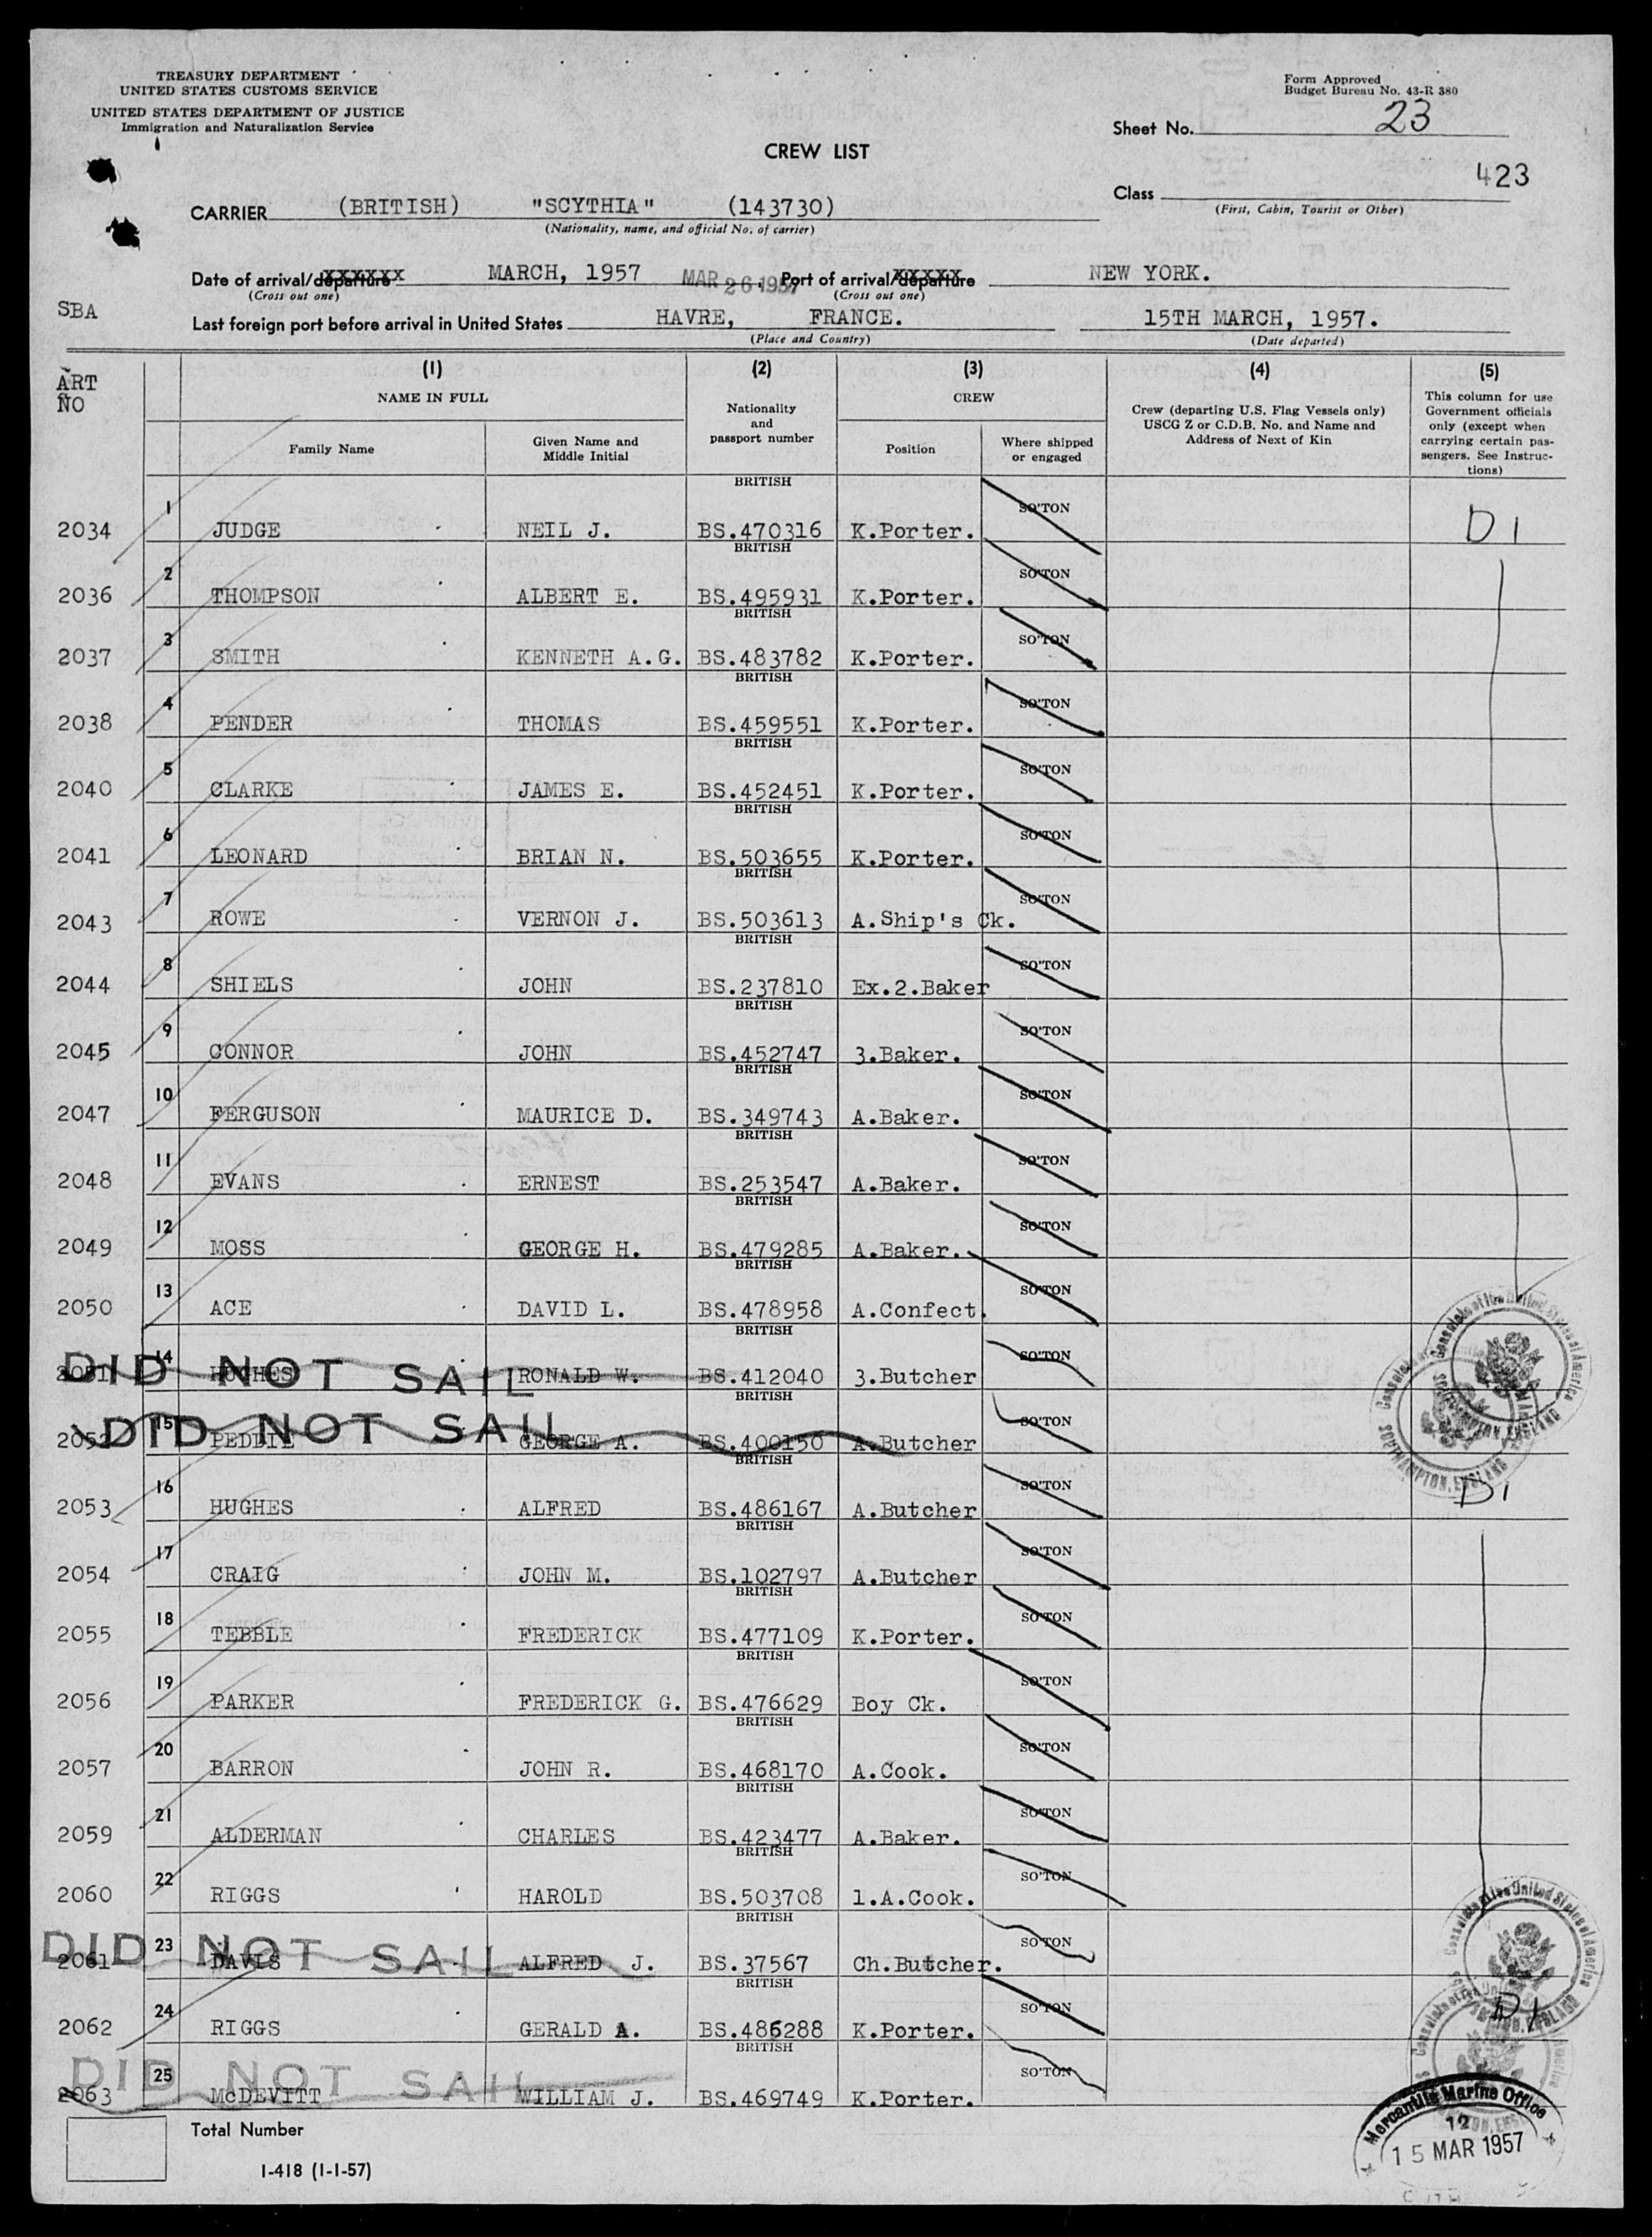 TREASURY DEPARTMENT
UNITED STATES CUSTOMS SERVICE
UNITED STATES DEPARTMENT OF JUSTICE
Immigration and Naturalization Service
Form Approved
Budget Bureau No. 43-R 380
Sheet No. 23
CREW LIST
423
Class
(First, Cabin, Tourist or Other)
CARRIER (BRITISH) "SCYTHIA" (143730)
(Nationality, name, and official No. of carrier)
Date of arrival/departure MARCH, 1957 MAR 26 1957 Port of arrival/departure NEW YORK.
(Cross out one) (Cross out one)
SBA
Last foreign port before arrival in United States HAVRE, FRANCE. 15TH MARCH, 1957.
(Place and Country) (Date departed)
ART NO
(1) (2) (3) (4) (5)
NAME IN FULL
Family Name
Given Name and Middle Initial
Nationality and passport number
CREW
Position
Where shipped or engaged
Crew (departing U.S. Flag Vessels only) USCG Z or C.D.B. No. and Name and Address of Next of Kin
This column for use Government officials only (except when carrying certain passengers. See Instructions)
2034 1 JUDGE NEIL J. BRITISH BS.470316 K.Porter. SO'TON D1
2036 2 THOMPSON ALBERT E. BRITISH BS.495931 K.Porter. SO'TON
2037 3 SMITH KENNETH A.G. BRITISH BS.483782 K.Porter. SO'TON
2038 4 PENDER THOMAS BRITISH BS.459551 K.Porter. SO'TON
2040 5 CLARKE JAMES E. BRITISH BS.452451 K.Porter. SO'TON
2041 6 LEONARD BRIAN N. BRITISH BS.503655 K.Porter. SO'TON
2043 7 ROWE VERNON J. BRITISH BS.503613 A.Ship's Ck. SO'TON
2044 8 SHIELS JOHN BRITISH BS.237810 Ex.2.Baker SO'TON
2045 9 CONNOR JOHN BRITISH BS.452747 3.Baker. SO'TON
2047 10 FERGUSON MAURICE D. BRITISH BS.349743 A.Baker. SO'TON
2048 11 EVANS ERNEST BRITISH BS.253547 A.Baker. SO'TON
2049 12 MOSS GEORGE H. BRITISH BS.479285 A.Baker. SO'TON
2050 13 ACE DAVID L. BRITISH BS.478958 A.Confect. SO'TON
2051 14 HUGHES RONALD W. BRITISH BS.412040 3.Butcher SO'TON
DID NOT SAIL
2052 15 PEDDIE GEORGE A. BRITISH BS.400150 A.Butcher SO'TON
DID NOT SAIL
2053 16 HUGHES ALFRED BRITISH BS.486167 A.Butcher SO'TON D1
2054 17 CRAIG JOHN M. BRITISH BS.102797 A.Butcher SO'TON
2055 18 TEBBLE FREDERICK BRITISH BS.477109 K.Porter. SO'TON
2056 19 PARKER FREDERICK G. BRITISH BS.476629 Boy Ck. SO'TON
2057 20 BARRON JOHN R. BRITISH BS.468170 A.Cook. SO'TON
2059 21 ALDERMAN CHARLES BRITISH BS.423477 A.Baker. SO'TON
2060 22 RIGGS HAROLD BRITISH BS.503708 1.A.Cook. SO'TON
2061 23 DAVIS ALFRED J. BRITISH BS.37567 Ch.Butcher. SO'TON
DID NOT SAIL
2062 24 RIGGS GERALD A. BRITISH BS.486288 K.Porter. SO'TON D1
2063 25 McDEVITT WILLIAM J. BRITISH BS.469749 K.Porter. SO'TON
DID NOT SAIL
Consulate of the United States of America
SOUTHAMPTON, ENGLAND
Total Number
I-418 (1-1-57)
Mercantile Marine Office
12
15 MAR 1957